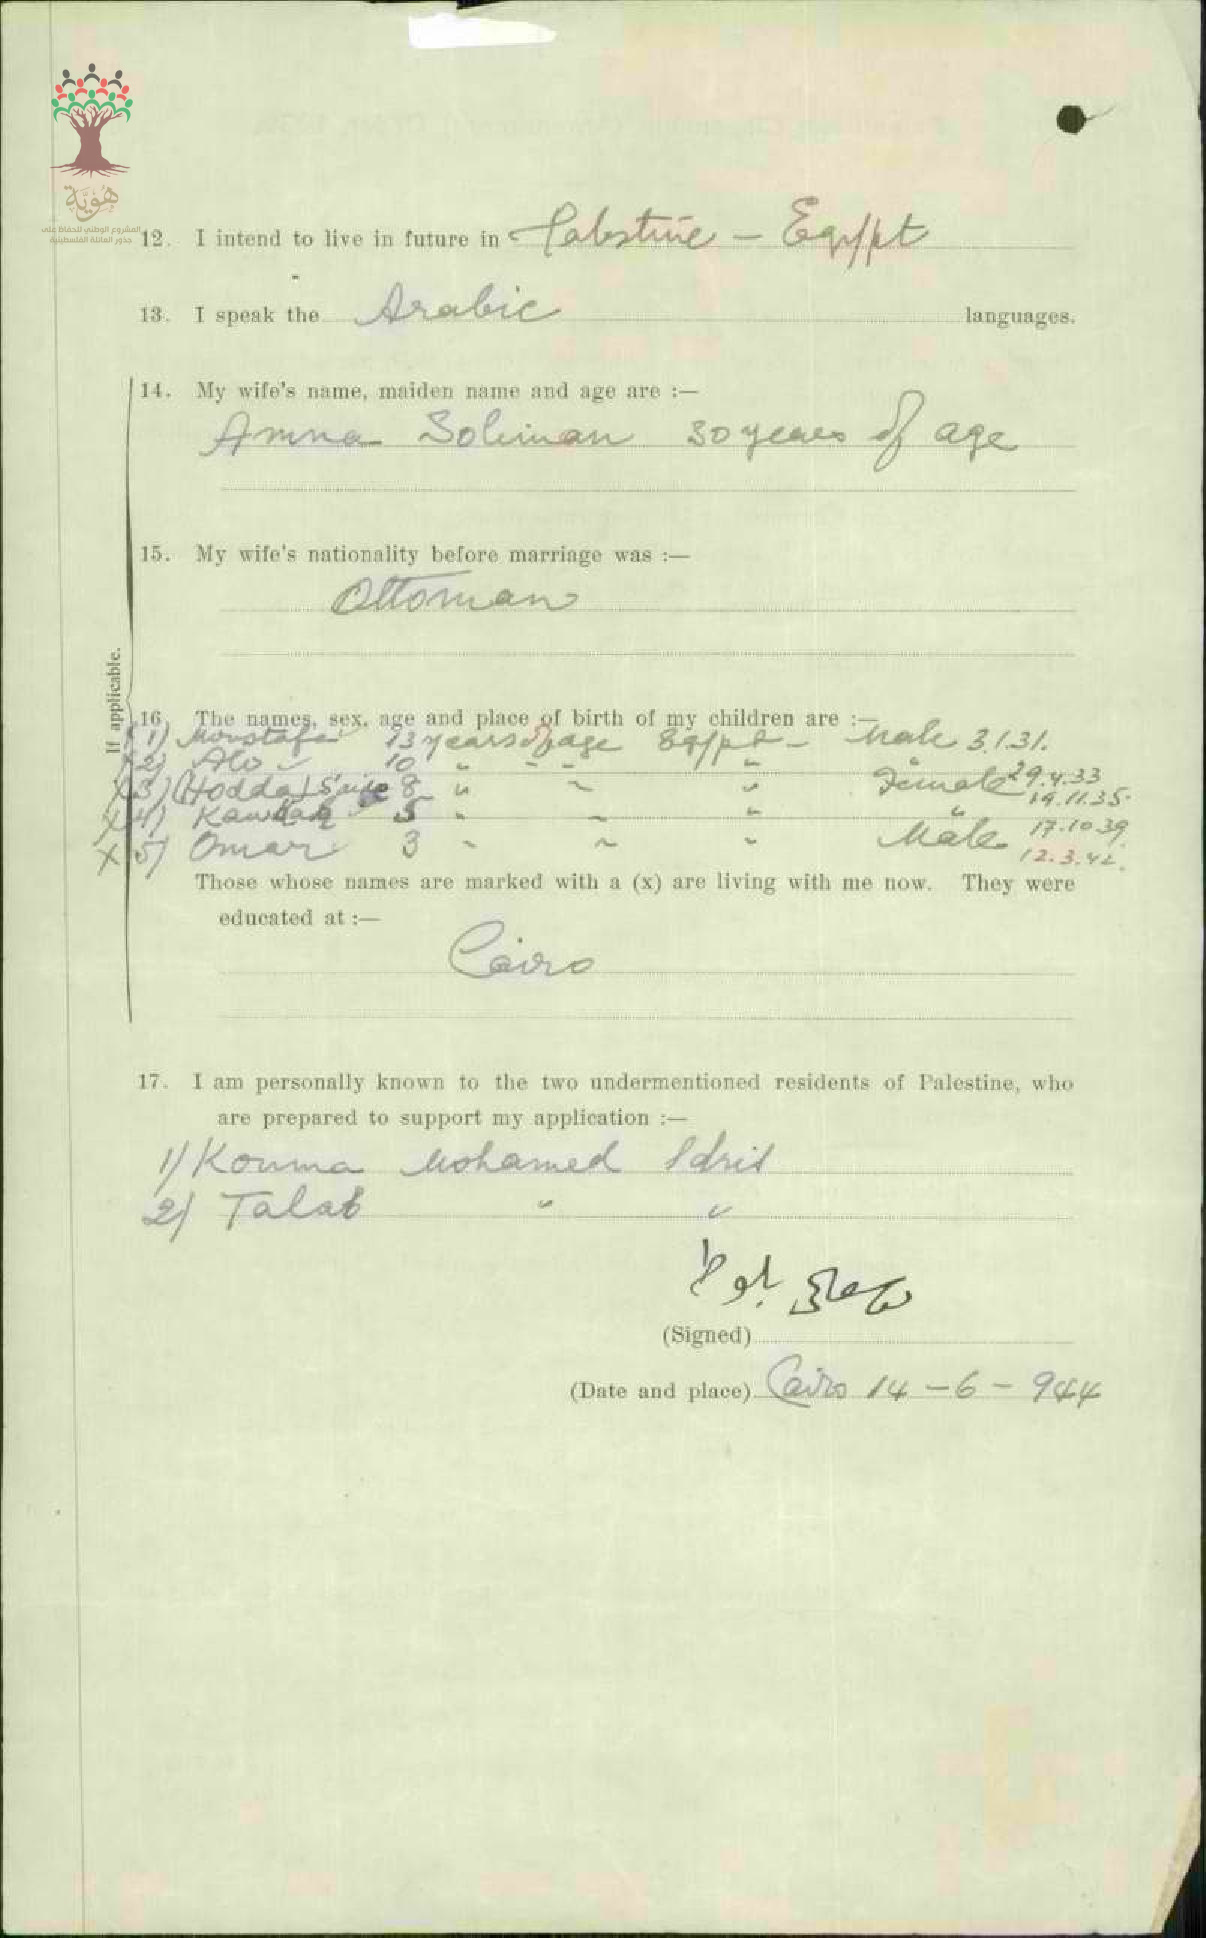 هُويّة
المشروع الوطني للحفاظ على
جذور العائلة الفلسطينية
12. I intend to live in future in Palestine – Egypt
13. I speak the Arabic languages.
If applicable.
14. My wife's name, maiden name and age are :—
Amna Soliman 30 years of age
15. My wife's nationality before marriage was :—
Ottoman
16. The names, sex, age and place of birth of my children are :—
1) Moustafa 13 years of age Egypt – Male 3.1.31.
2) 10 " " " " " 29.4.33
x 3) (Hodda) 8 " " " Female 19.11.35.
x 4) 5 " " " " 17.10.39.
x 5) Omar 3 " " " Male 12.3.42.
Those whose names are marked with a (x) are living with me now. They were
educated at :—
Cairo
17. I am personally known to the two undermentioned residents of Palestine, who
are prepared to support my application :—
1) Kouma Mohamed Idris
2) Talab " "
(Signed)
(Date and place) Cairo 14 – 6 – 944